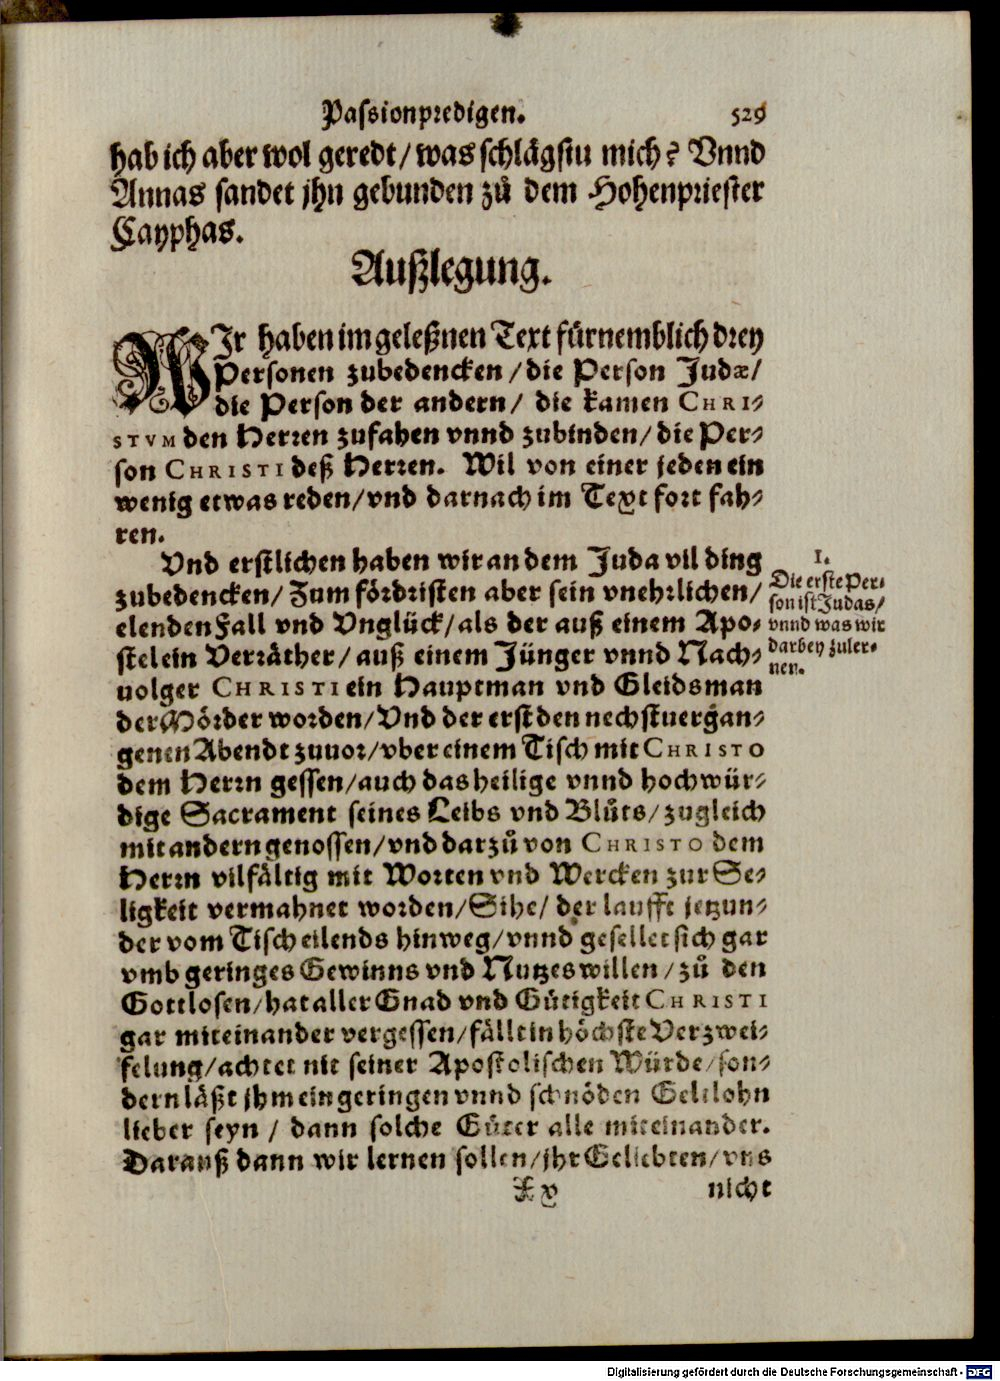 Passionpredigen. 529
hab ich aber wol geredt/ was schlägstu mich? Vnnd
Annas sandet jhn gebunden zů dem Hohenpriester
Cayphas.
Außlegung.
WIr haben im geleßnen Text fürnemblich drey
Personen zubedencken/ die Person Judæ/
die Person der andern/ die kamen CHRI-
STVM den Herren zufahen vnnd zubinden/ die Per-
son CHRISTI deß Herren. Wil von einer jeden ein
wenig etwas reden/ vnd darnach im Text fort fah-
ren.
Vnd erstlichen haben wir an dem Juda vil ding
zubedencken/ Zum fördristen aber sein vnehrlichen/
elenden Fall vnd Vnglück/ als der auß einem Apo-
stel ein Verräther/ auß einem Jünger vnnd Nach-
uolger CHRISTI ein Hauptman vnd Gleidsman
der Mörder worden/ Vnd der erst den nechstuergan-
genen Abendt zuuor/ vber einem Tisch mit CHRISTO
dem Herrn gessen/ auch das heilige vnnd hochwür-
dige Sacrament seines Leibs vnd Blůts/ zugleich
mit andern genossen/ vnd darzů von CHRISTO dem
Herrn vilfältig mit Worten vnd Wercken zur Se-
ligkeit vermahnet worden/ Sihe/ der lauffe jetzun-
der vom Tisch eilends hinweg/ vnnd gesellet sich gar
vmb geringes Gewinns vnd Nutzes willen/ zů den
Gottlosen/ hat aller Gnad vnd Gütigkeit CHRISTI
gar miteinander vergessen/ fällt in höchste Verzwei-
felung/ achtet nit seiner Apostolischen Würde/ son-
dern läßt jhm ein geringen vnnd schnöden Geltlohn
lieber seyn/ dann solche Güter alle miteinander.
Darauß dann wir lernen sollen/ jhr Geliebten/ vns
Xx v nicht
1.
Die erste Per-
son ist Judas/
vnnd was wir
darbey zuler-
nen.
Digitalisierung gefördert durch die Deutsche Forschungsgemeinschaft - DFG